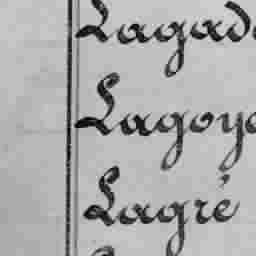 Lagad
Lagoy
Lagré